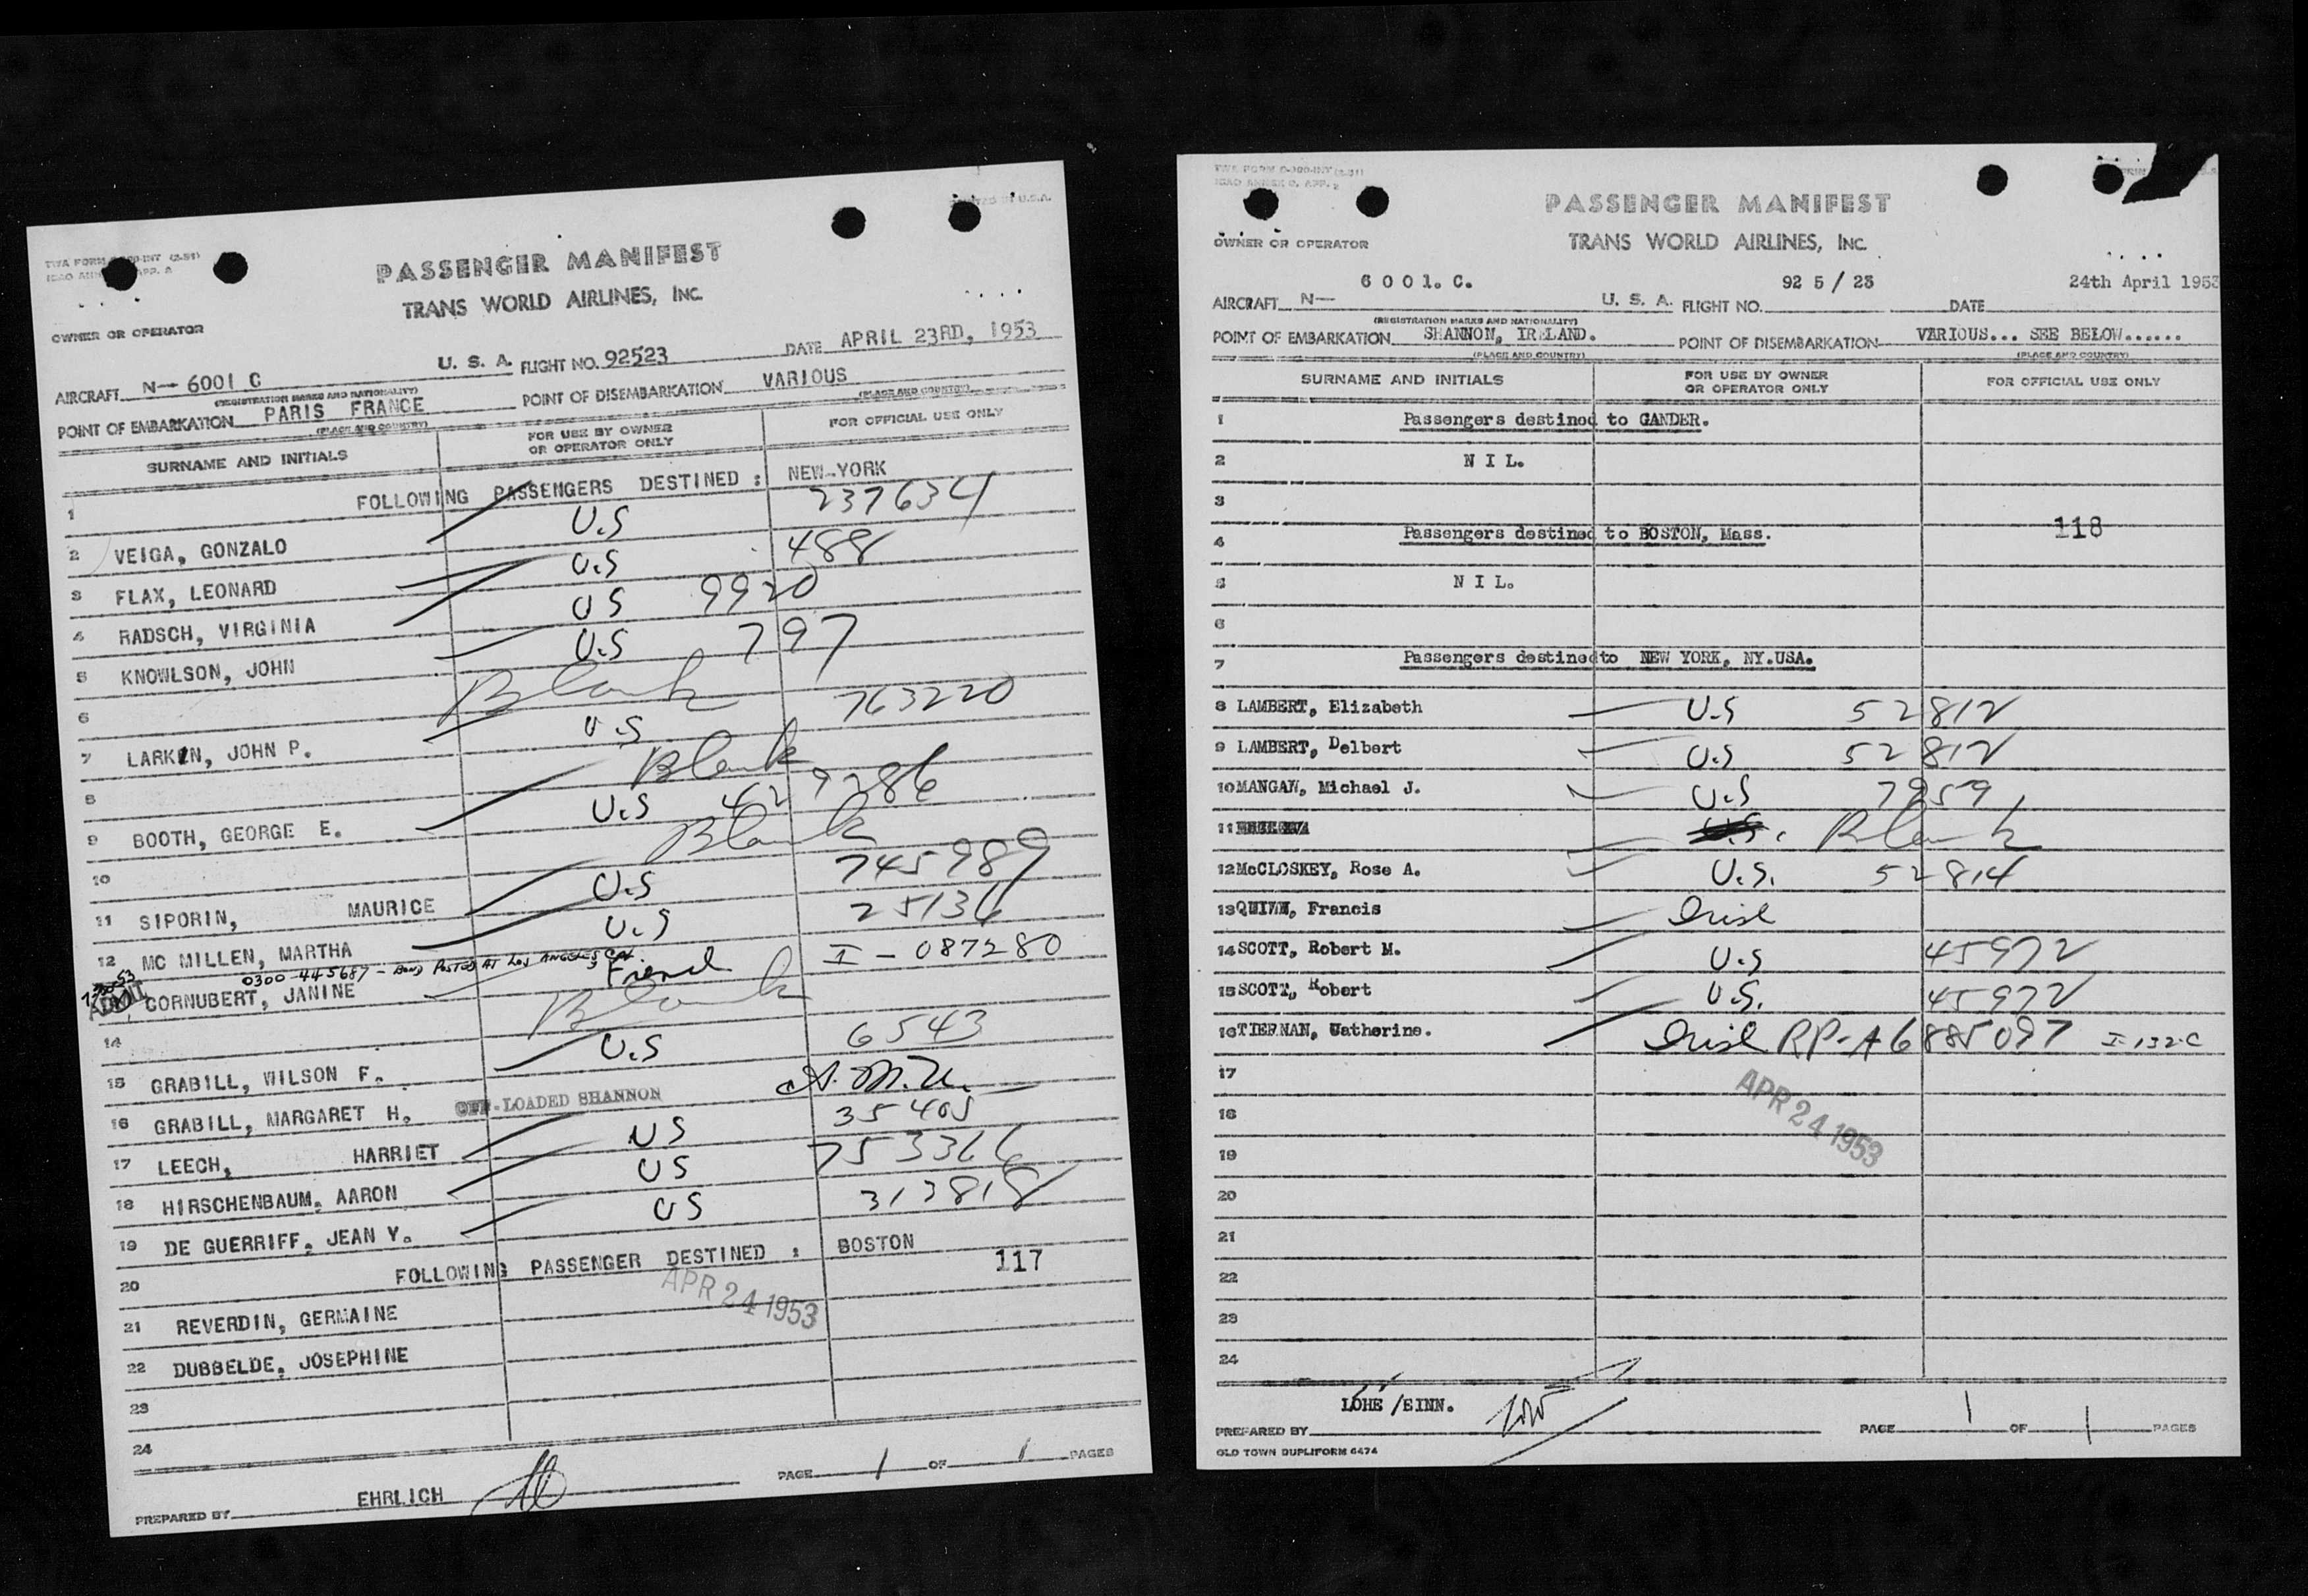 TWA FORM
PRINTED IN U.S.A.
PASSENGER MANIFEST
TRANS WORLD AIRLINES, INC.
OWNER OR OPERATOR
AIRCRAFT N- 6001 C U. S. A. FLIGHT NO. 92523 DATE APRIL 23RD, 1953
(REGISTRATION MARKS AND NATIONALITY)
POINT OF EMBARKATION PARIS FRANCE POINT OF DISEMBARKATION VARIOUS
(PLACE AND COUNTRY) (PLACE AND COUNTRY)
SURNAME AND INITIALS FOR USE BY OWNER OR OPERATOR ONLY FOR OFFICIAL USE ONLY
1 FOLLOWING PASSENGERS DESTINED : NEW-YORK
2 VEIGA, GONZALO U.S 237634
3 FLAX, LEONARD U.S 488
4 RADSCH, VIRGINIA U S 9920
5 KNOWLSON, JOHN U.S 797
6 Blank
7 LARKIN, JOHN P. U.S 763220
8 Blank
9 BOOTH, GEORGE E. U.S 429286
10 Blank
11 SIPORIN, MAURICE U.S 745989
12 MC MILLEN, MARTHA U.S 25136
0300-445687 - BOND POSTED AT LOS ANGELES CAL.
CORNUBERT, JANINE French I - 087280
14 Blank
15 GRABILL, WILSON F. U.S 6543
16 GRABILL, MARGARET H. OFF-LOADED SHANNON
17 LEECH, HARRIET US 35405
18 HIRSCHENBAUM, AARON US 753366
19 DE GUERRIFF, JEAN Y. US 313818
20 FOLLOWING PASSENGER DESTINED : BOSTON
117
APR 24 1953
21 REVERDIN, GERMAINE
22 DUBBELDE, JOSEPHINE
23
24
PREPARED BY EHRLICH PAGE 1 OF 1 PAGES
TWA FORM O-100-INT (2-51)
ICAO ANNEX 9, APP. 2
PASSENGER MANIFEST
OWNER OR OPERATOR TRANS WORLD AIRLINES, INC.
AIRCRAFT N- 6 0 0 1. C. U. S. A. FLIGHT NO. 92 5 / 23 DATE 24th April 1953
(REGISTRATION MARKS AND NATIONALITY)
POINT OF EMBARKATION SHANNON, IRELAND. POINT OF DISEMBARKATION VARIOUS... SEE BELOW......
(PLACE AND COUNTRY) (PLACE AND COUNTRY)
SURNAME AND INITIALS FOR USE BY OWNER OR OPERATOR ONLY FOR OFFICIAL USE ONLY
1 Passengers destined to GANDER.
2 N I L.
3
4 Passengers destined to BOSTON, Mass. 118
5 N I L.
6
7 Passengers destined to NEW YORK, NY.USA.
8 LAMBERT, Elizabeth U.S 52812
9 LAMBERT, Delbert U.S 52812
10 MANGAN, Michael J. U.S 7959
11 Blank
12 McCLOSKEY, Rose A. U.S. 52814
13 QUINN, Francis Irish
14 SCOTT, Robert M. U.S 45972
15 SCOTT, Robert U.S. 45972
16 TIERNAN, Catherine. Irish RP-A6885097 I-132-C
17
18
APR 24 1953
19
20
21
22
23
24
PREPARED BY LOHE /SINN. PAGE 1 OF 1 PAGES
OLD TOWN DUPLIFORM 6474